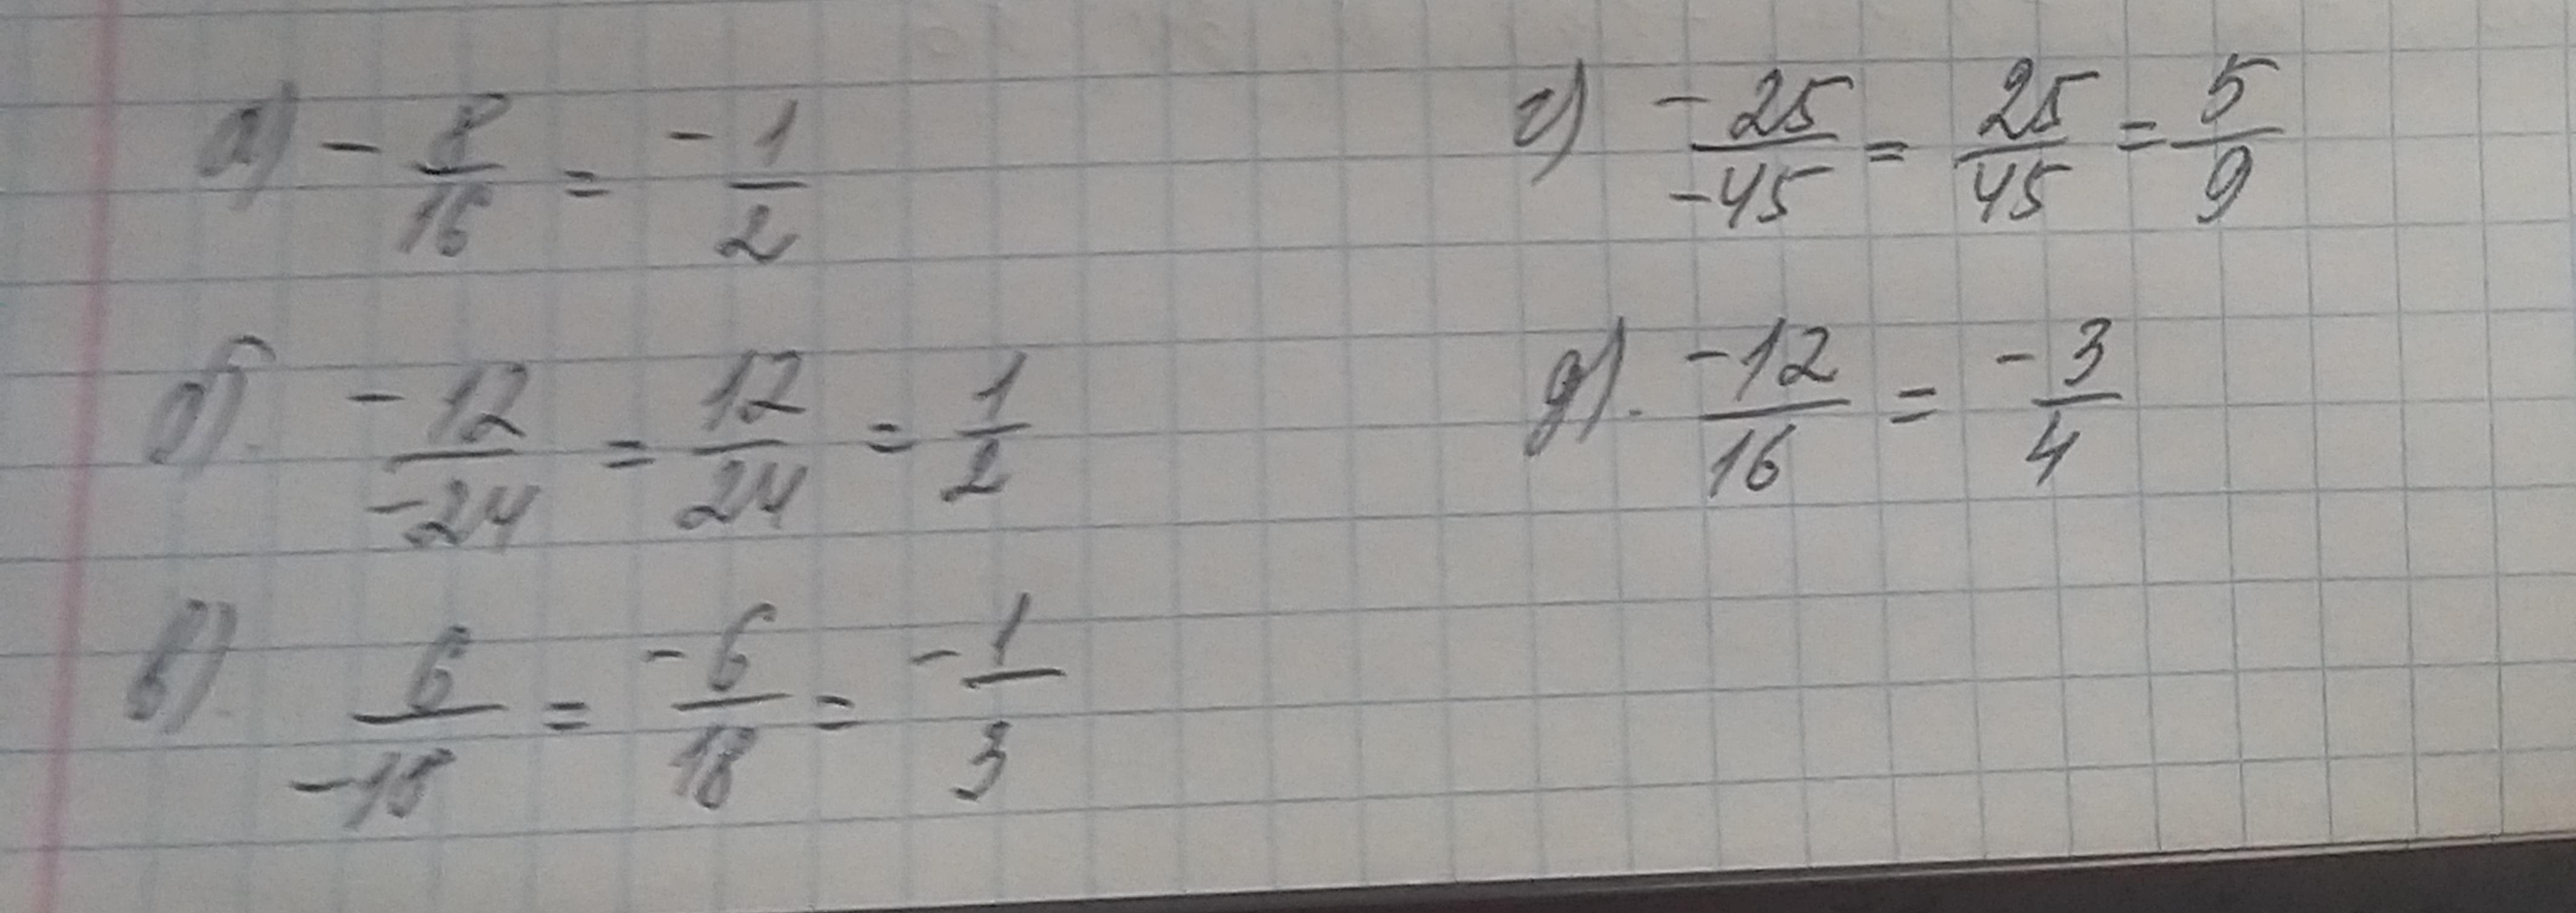 а) - 8/16 = -1/2
б). -12/-24 = 12/24 = 1/2
в). 6/-18 = -6/18 = -1/3
г) -25/-45 = 25/45 = 5/9
д). -12/16 = -3/4